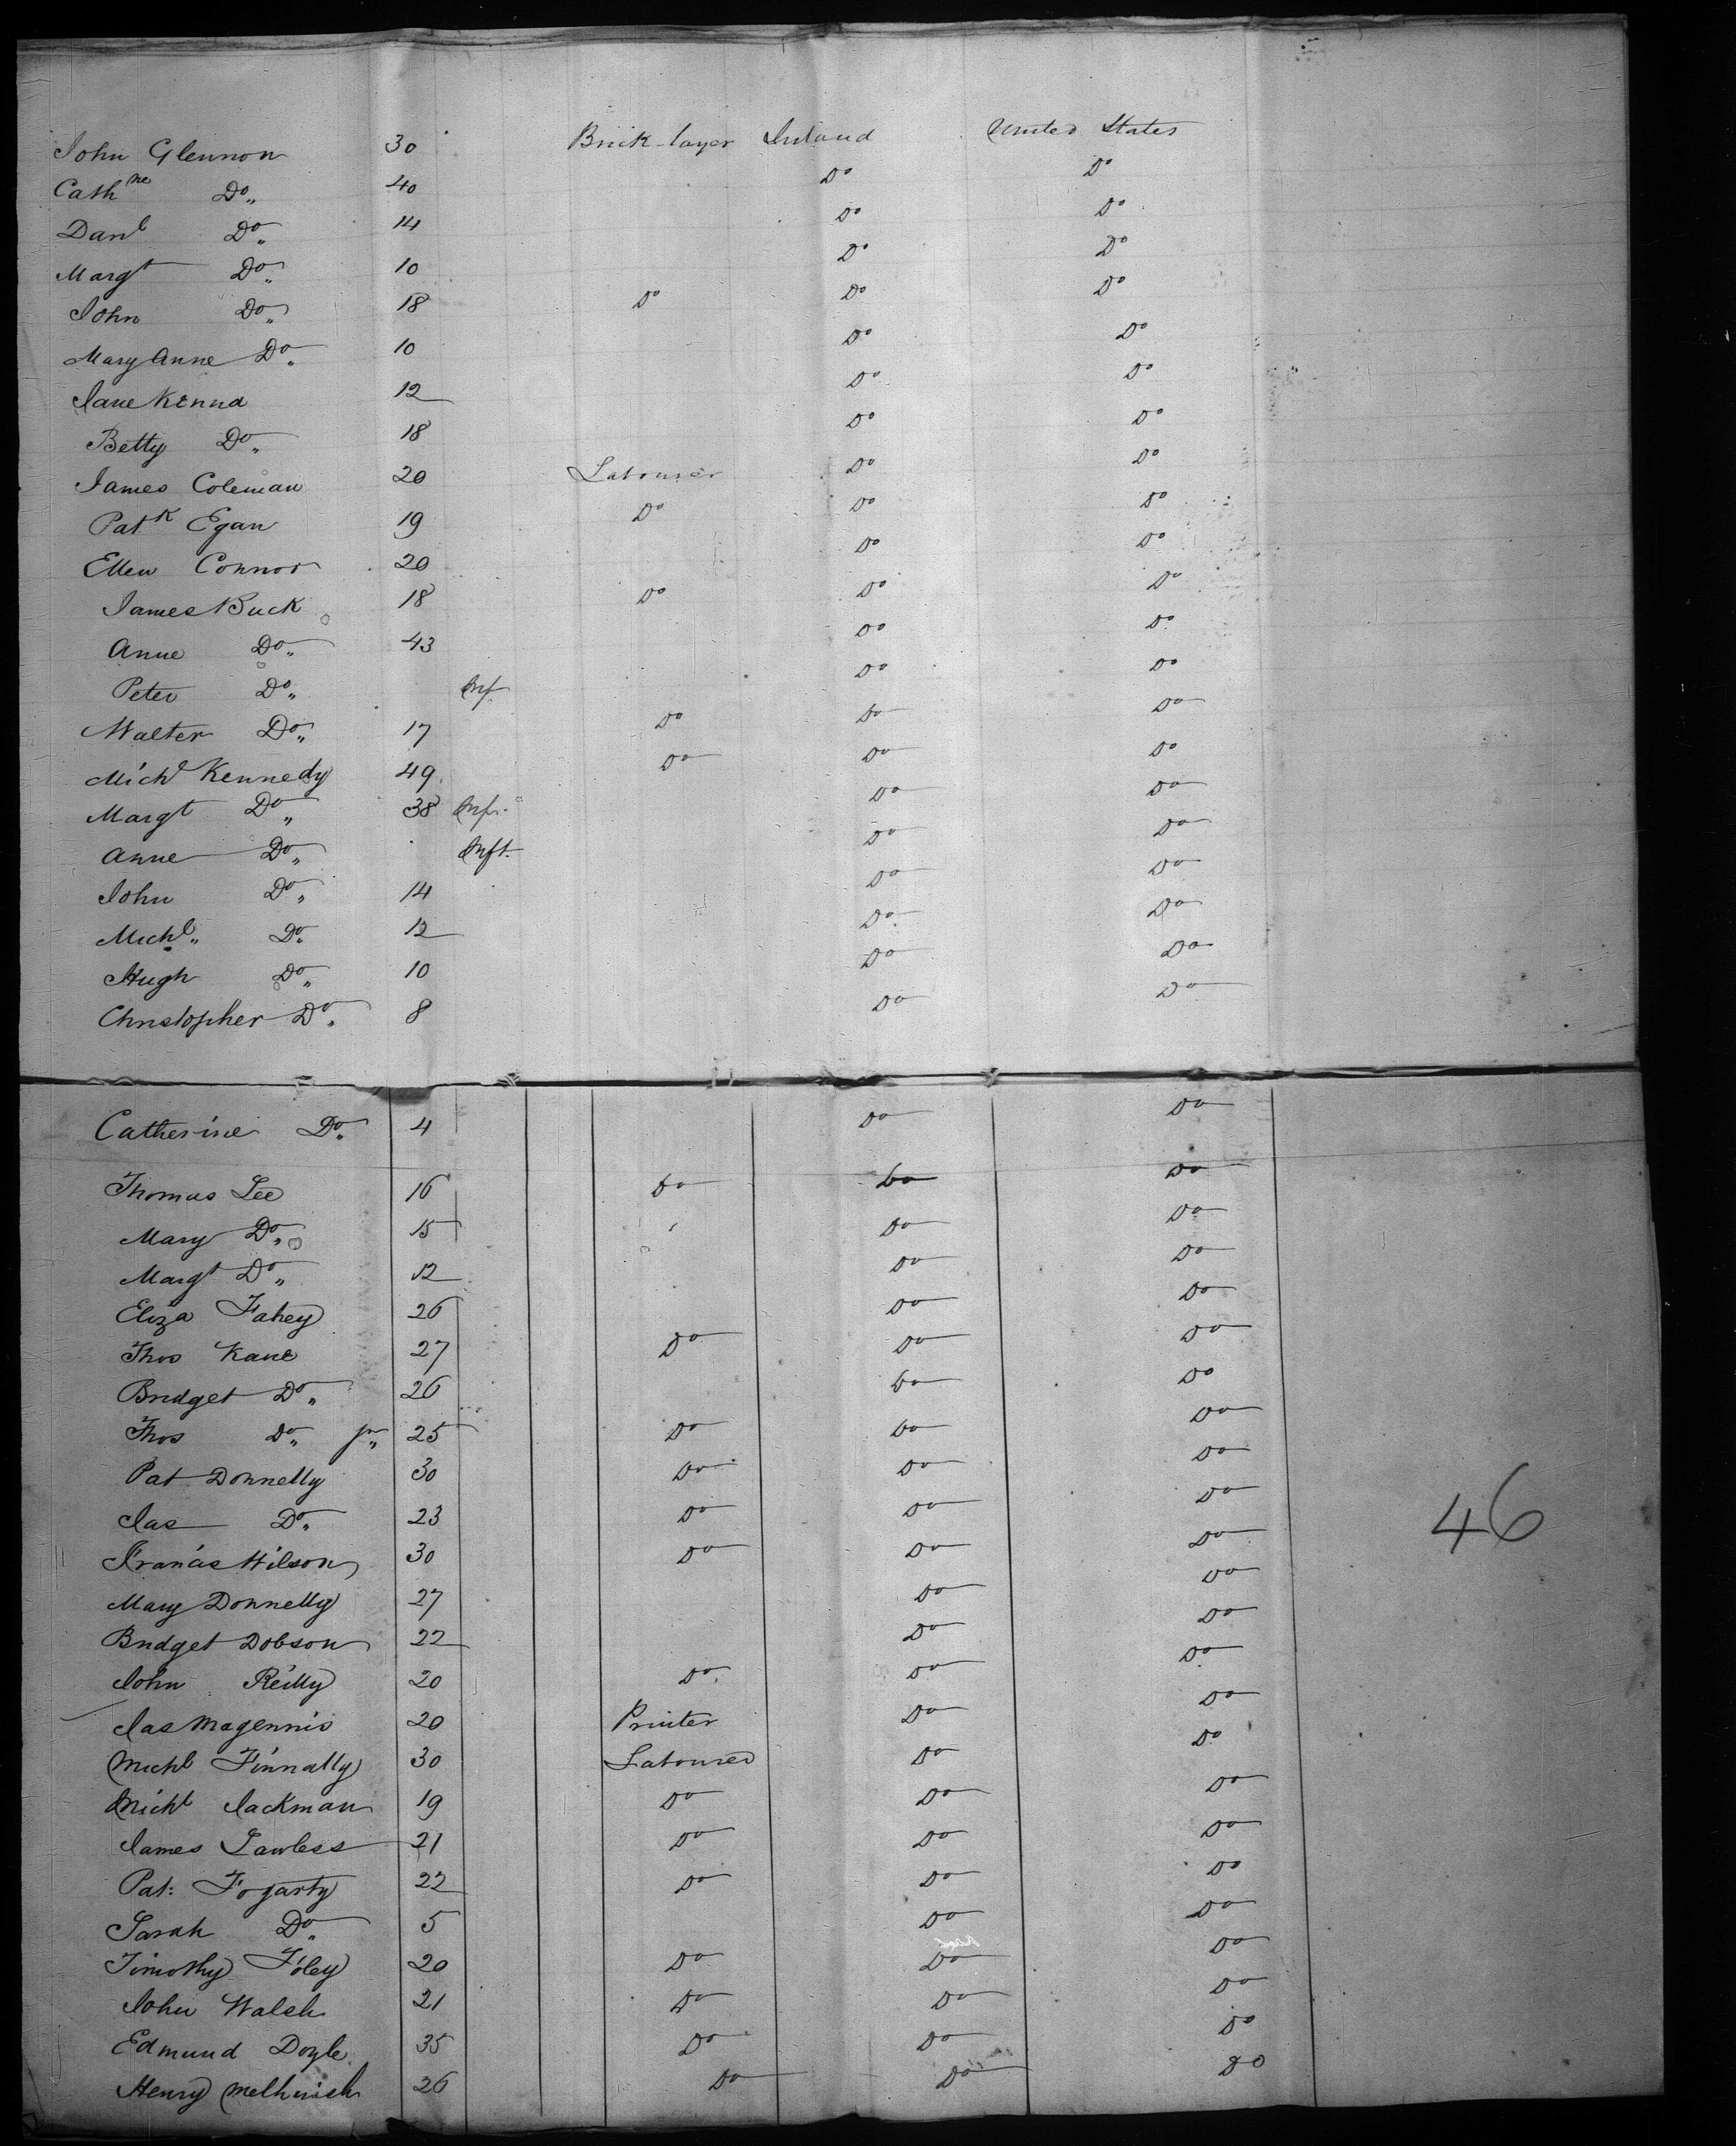 John Glennon 30 Brick-layer Ireland United States
Cathne Do 40 Do Do
Danl Do 14 Do Do
Margt Do 10 Do Do
John Do 18 Do Do Do
Mary Anne Do 10 Do Do
Jane Kenna 12 Do Do
Betty Do 18 Do Do
James Coleman 20 Labourer Do Do
Patk Egan 19 Do Do Do
Ellen Connor 20 Do Do
James Buck 18 Do Do Do
Anne Do 43 Do Do
Peter Do Inf Do Do
Walter Do 17 Do Do Do
Michl Kennedy 49 Do Do Do
Margt Do 38 Inf Do Do
Anne Do Inft. Do Do
John Do 14 Do Do
Michl Do 12 Do Do
Hugh Do 10 Do Do
Christopher Do 8 Do Do
Catherine Do 4 Do Do
Thomas Lee 16 Do Do Do
Mary Do 15 Do Do
Margt Do 12 Do Do
Eliza Fahey 26 Do Do
Thos Kane 27 Do Do Do
Bridget Do 26 Do Do
Thos Do Jr 25 Do Do Do
Pat Donnelly 30 Do Do Do
Jas Do 23 Do Do Do
Francis Wilson 30 Do Do Do
Mary Donnelly 27 Do Do
Bridget Dobson 22 Do Do
John Reilly 20 Do Do Do
Jas Magennis 20 Printer Do Do
Michl Finnally 30 Labourer Do Do
Michl Jackman 19 Do Do Do
James Lawless 21 Do Do Do
Pat: Fogarty 22 Do Do Do
Sarah Do 5 Do Do
Timothy Foley 20 Do Do Do
John Walsh 21 Do Do Do
Edmund Doyle 35 Do Do Do
Henry Melhuish 26 Do Do Do
46